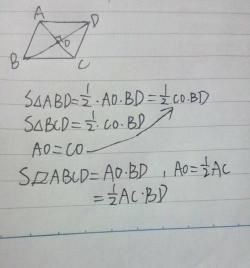 A D
O
B C
S△ABD=1/2·AO·BD=1/2CO·BD
S△BCD=1/2·CO·BD
AO=CO
S▱ABCD=AO·BD , AO=1/2AC
=1/2AC·BD